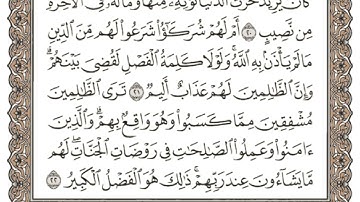 كَانَ يُرِيدُ حَرْثَ ٱلدُّنْيَا نُؤْتِهِۦ مِنْهَا وَمَا لَهُۥ فِى ٱلْءَاخِرَةِ
مِن نَّصِيبٍ ٢٠ أَمْ لَهُمْ شُرَكَٰٓؤُا۟ شَرَعُوا۟ لَهُم مِّنَ ٱلدِّينِ
مَا لَمْ يَأْذَنۢ بِهِ ٱللَّهُ ۚ وَلَوْلَا كَلِمَةُ ٱلْفَصْلِ لَقُضِىَ بَيْنَهُمْ ۗ
وَإِنَّ ٱلظَّٰلِمِينَ لَهُمْ عَذَابٌ أَلِيمٌ ٢١ تَرَى ٱلظَّٰلِمِينَ
مُشْفِقِينَ مِمَّا كَسَبُوا۟ وَهُوَ وَاقِعٌۢ بِهِمْ ۗ وَٱلَّذِينَ
ءَامَنُوا۟ وَعَمِلُوا۟ ٱلصَّٰلِحَٰتِ فِى رَوْضَاتِ ٱلْجَنَّاتِ ۖ لَهُم
مَّا يَشَآءُونَ عِندَ رَبِّهِمْ ۚ ذَٰلِكَ هُوَ ٱلْفَضْلُ ٱلْكَبِيرُ ٢٢